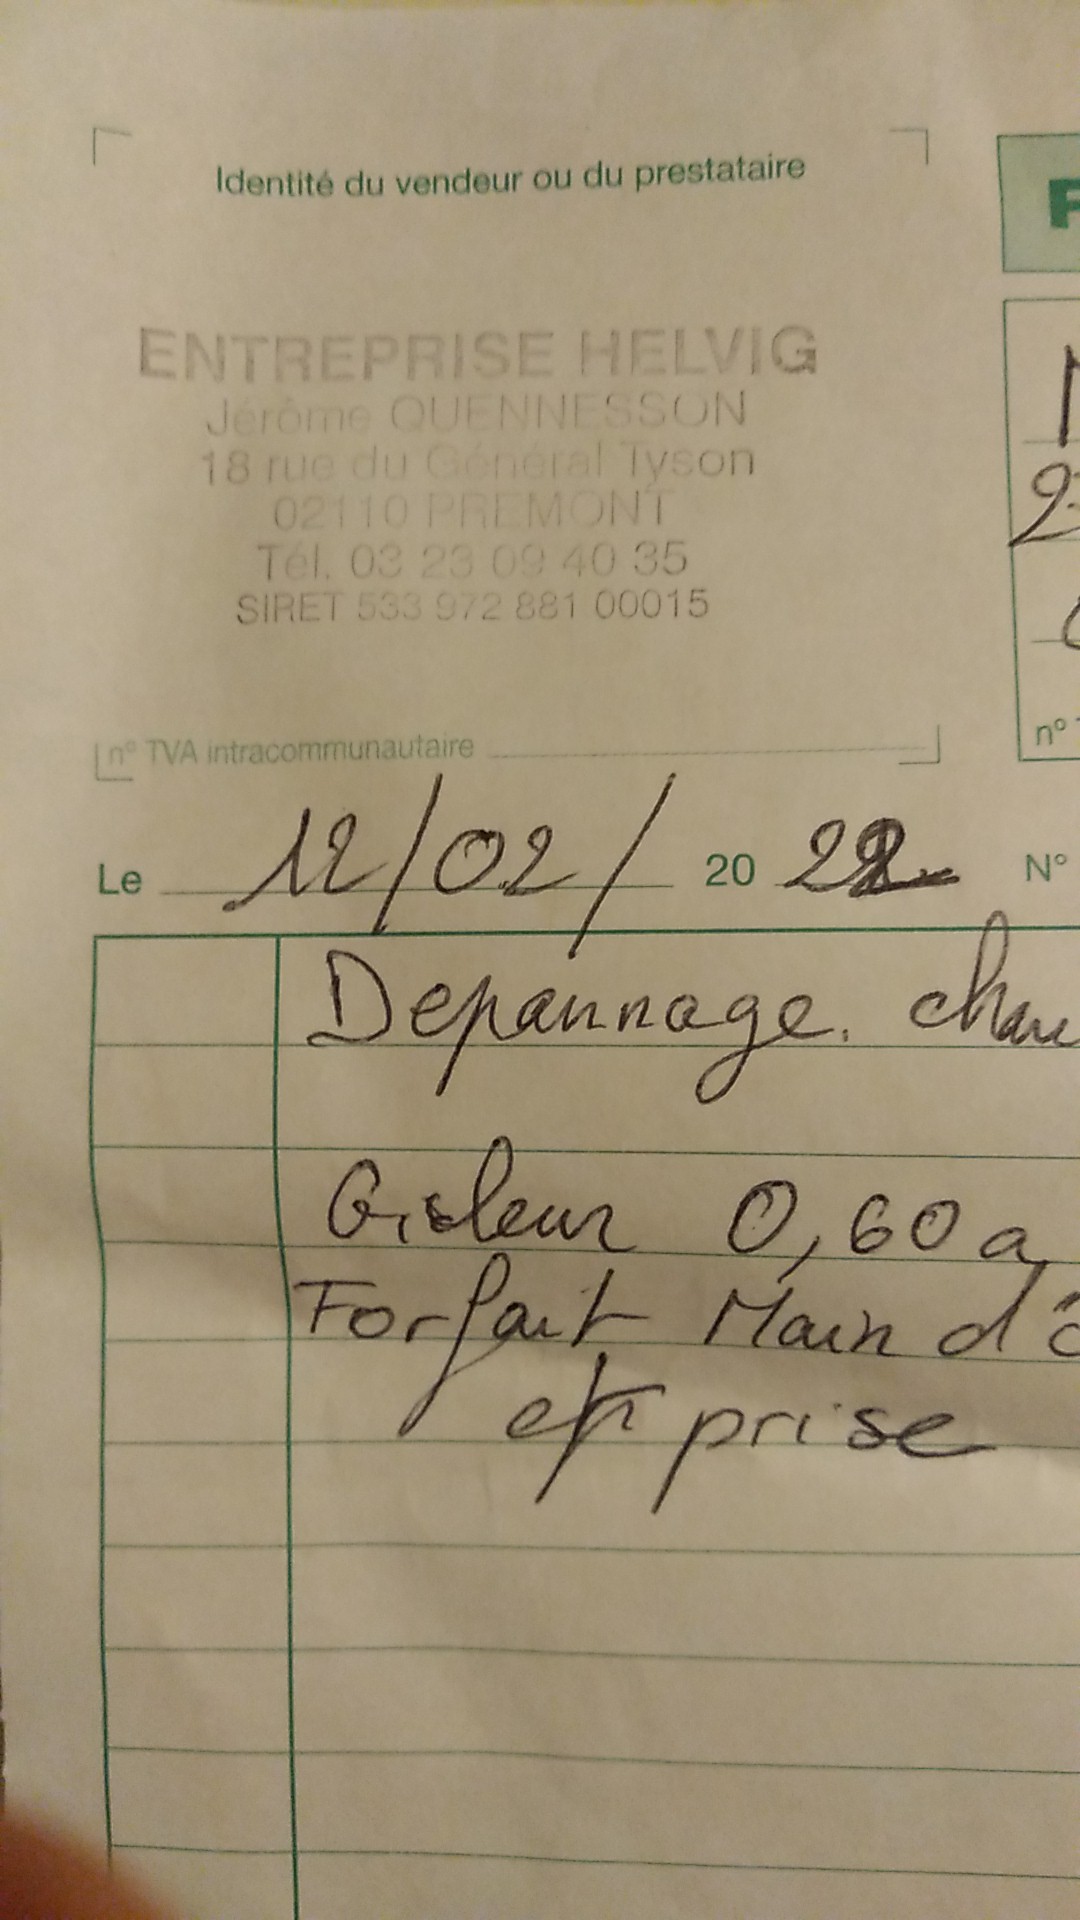 Identité du vendeur ou du prestataire
F
ENTREPRISE HELVIG
Jérôme QUENNESSON
18 rue du Général Tyson
02110 PREMONT
Tél. 03 23 09 40 35
SIRET 533 972 881 00015
n° TVA intracommunautaire
n°
Le 12/02/ 20 22 N°
Depannage. chau
Gisleur 0,60 a
Forfait Main d'o
et prise